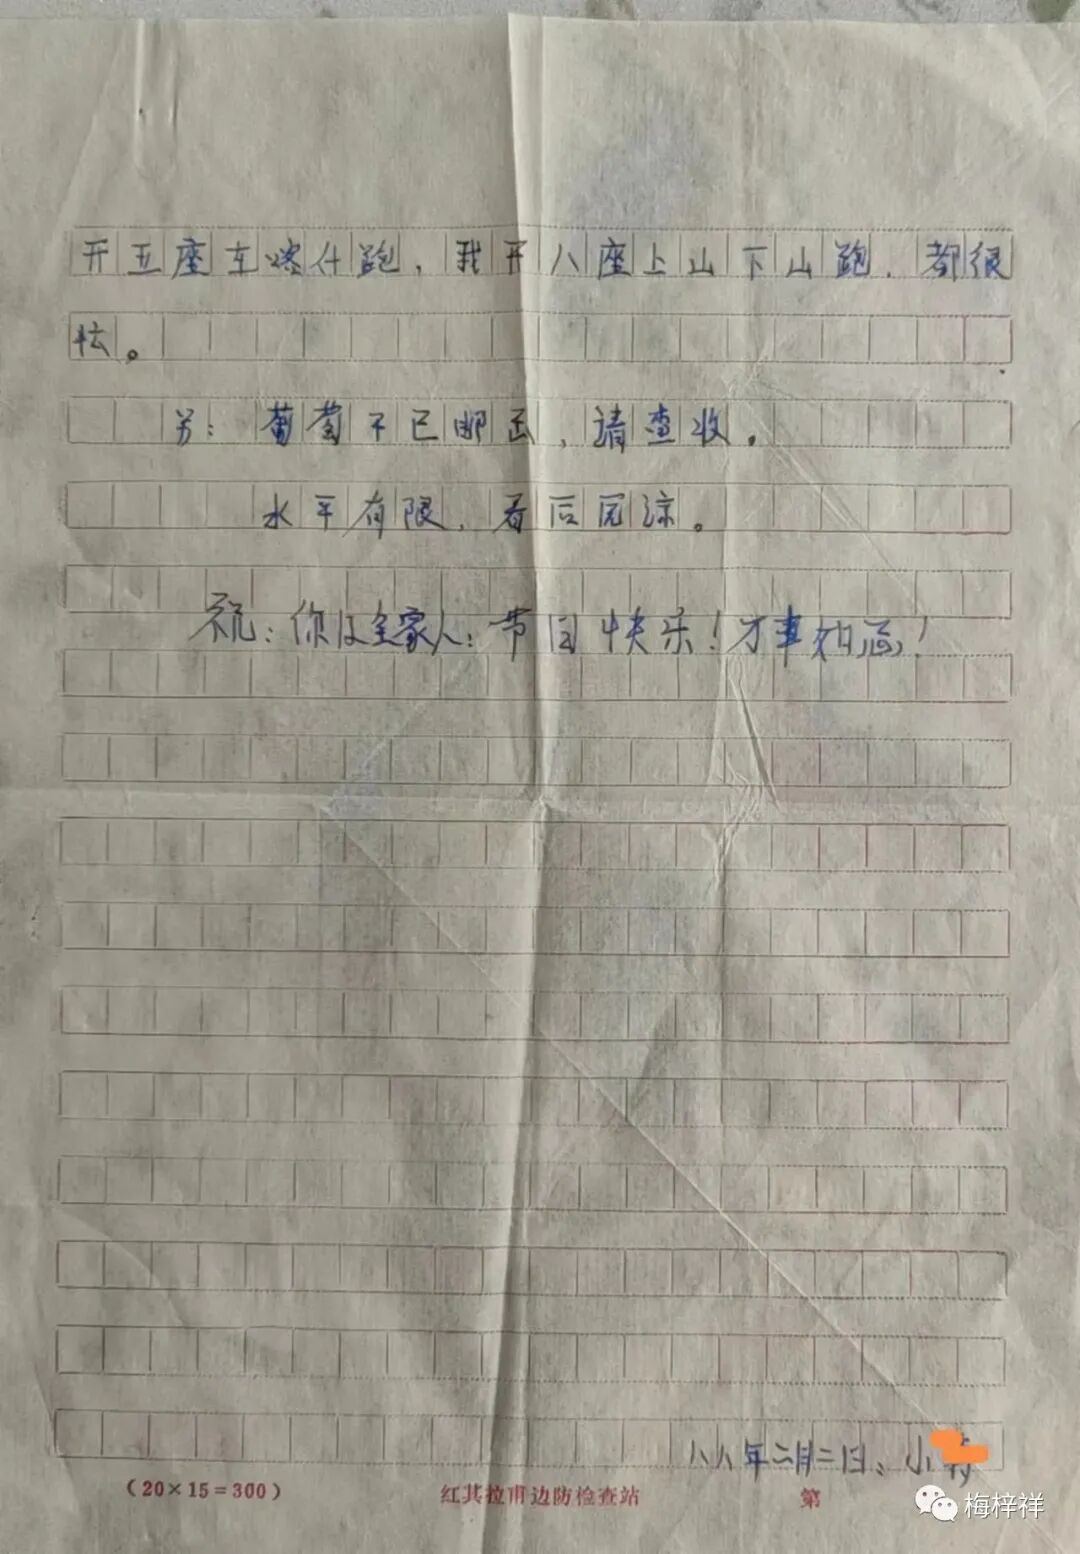 开五座车喀什跑，我开八座上山下山跑，都很
忙。
另：葡萄干已邮出，请查收。
水平有限，看后原谅。
祝：你及全家人：节日快乐！万事如意！
八八年二月二日、小
(20×15=300) 红其拉甫边防检查站 第
梅梓祥